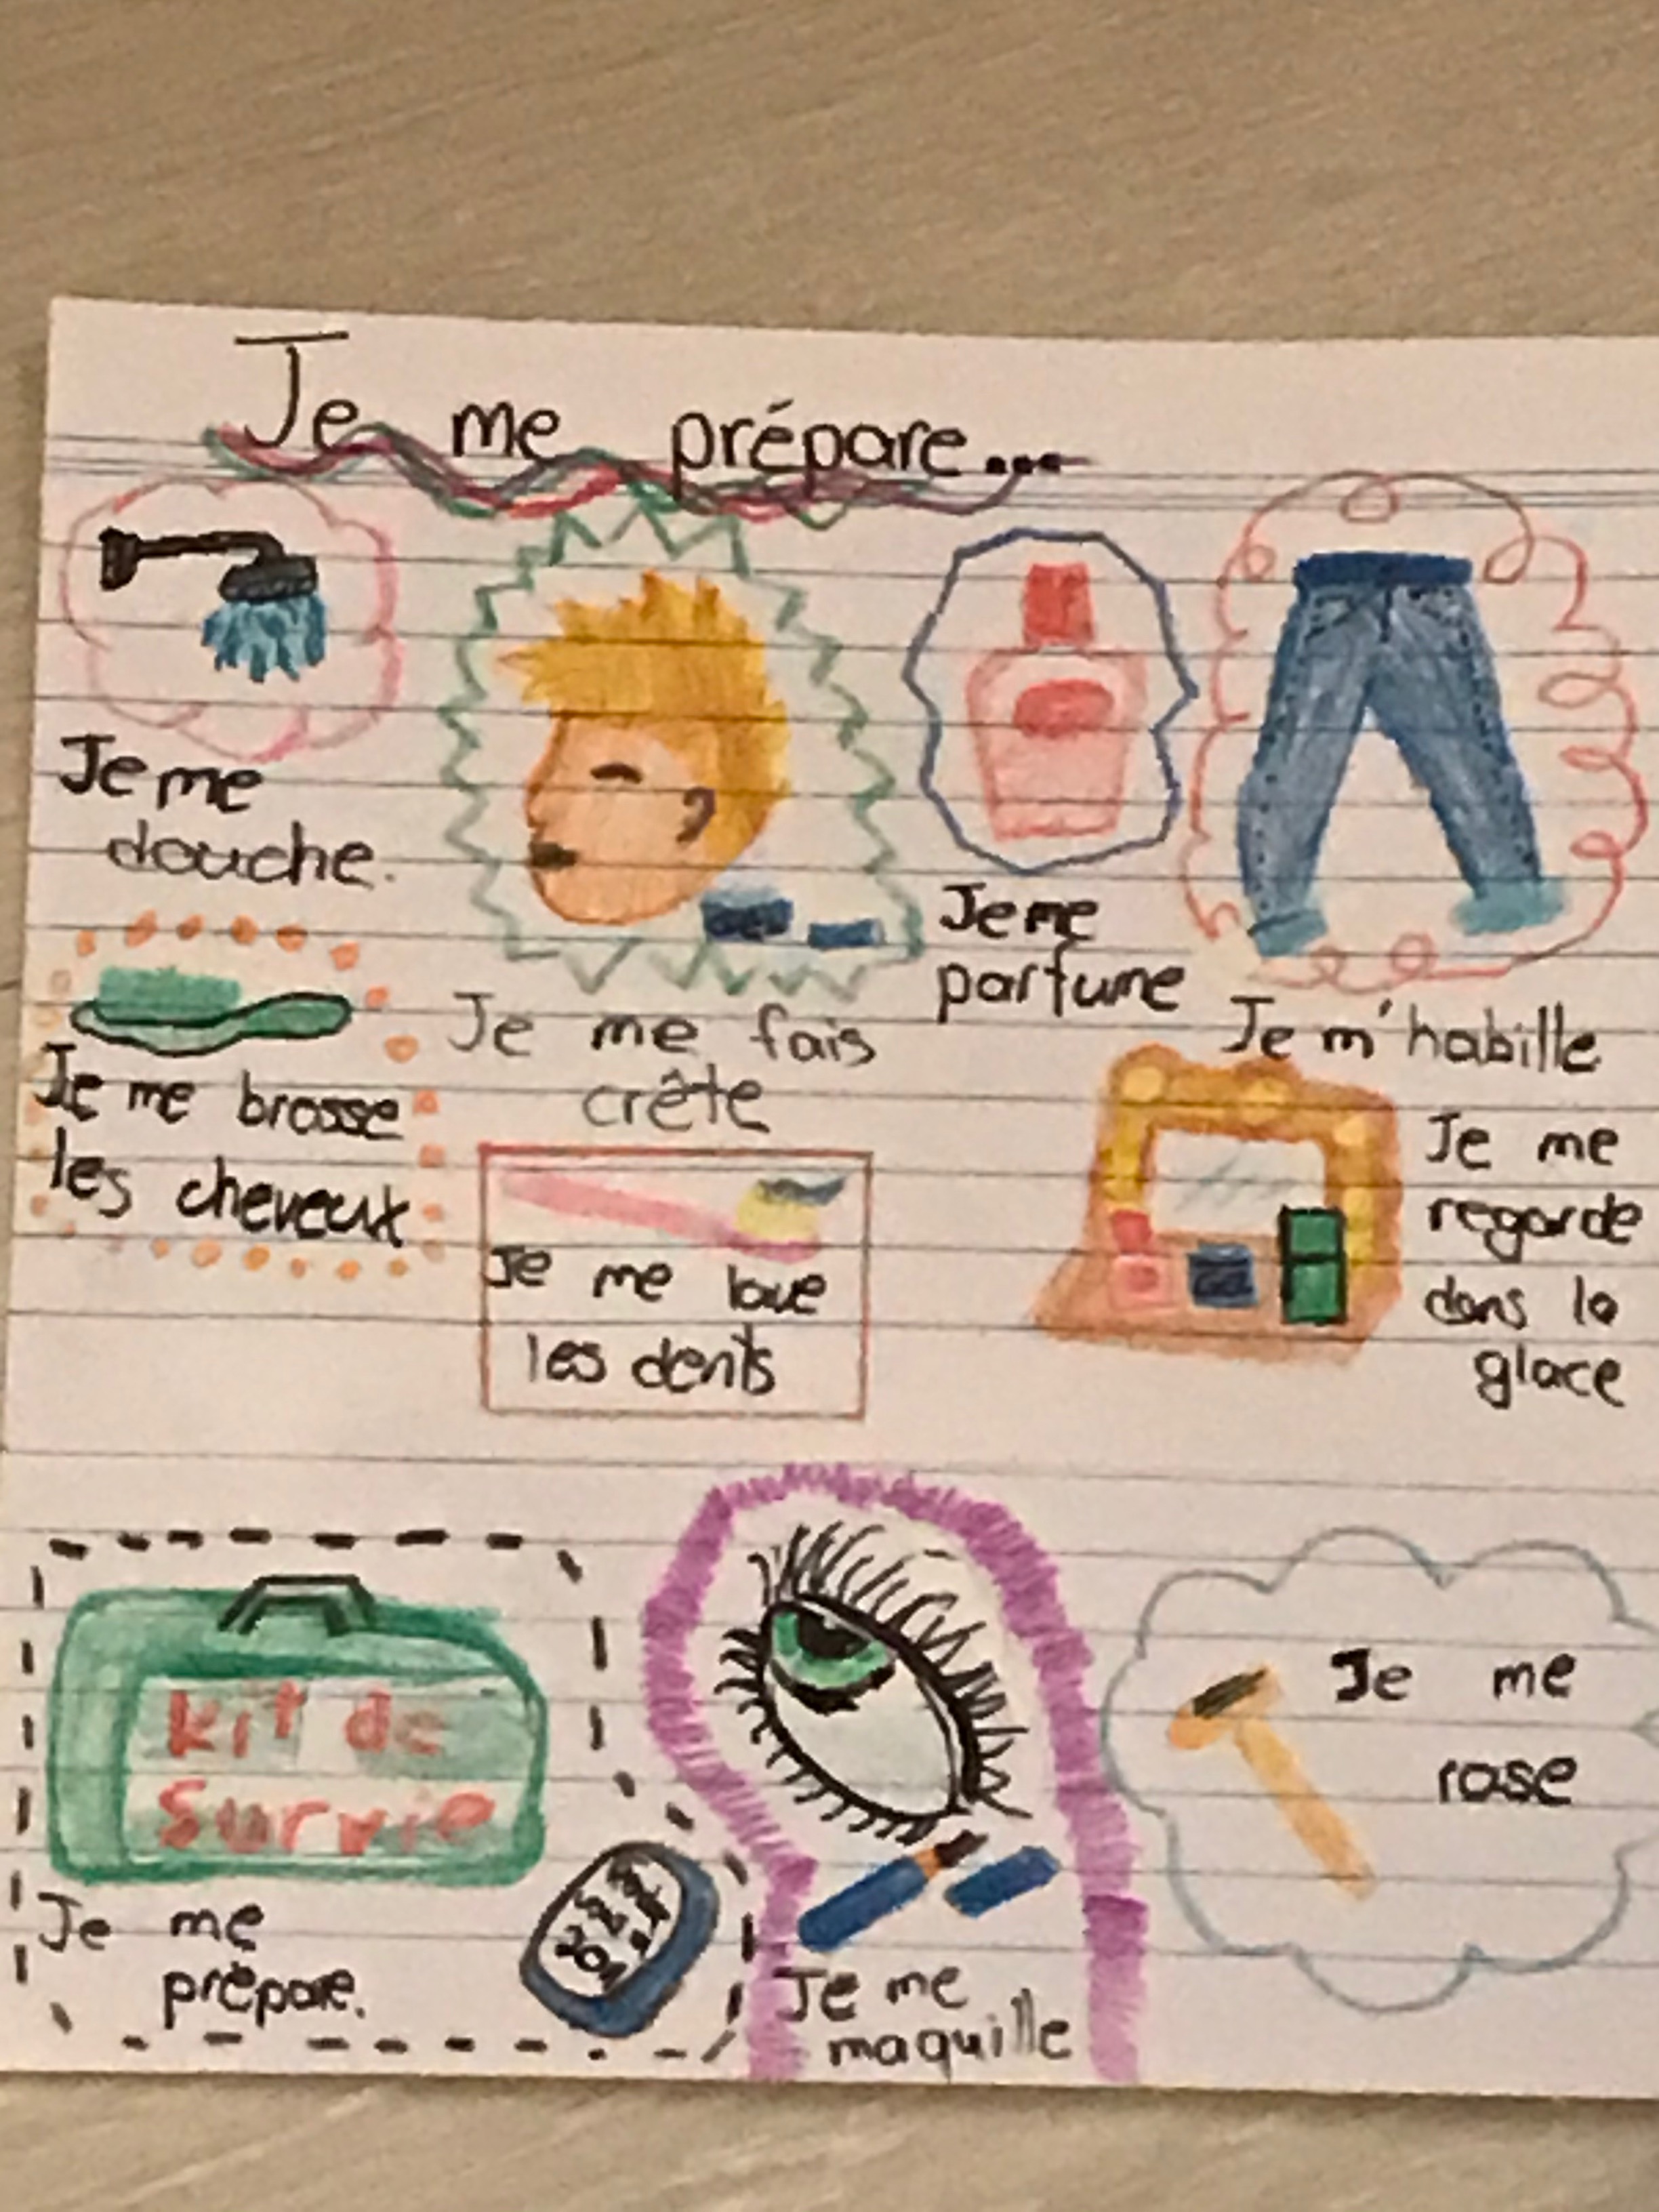 Je me prépare...
Je me
douche.
Je me fais
crête
Je me
parfume
Je m'habille
Je me brosse
les cheveux
Je me lave
les dents
Je me
regarde
dans la
glace
kit de
Survie
Je me
prépare.
Je me
maquille
Je me
rase